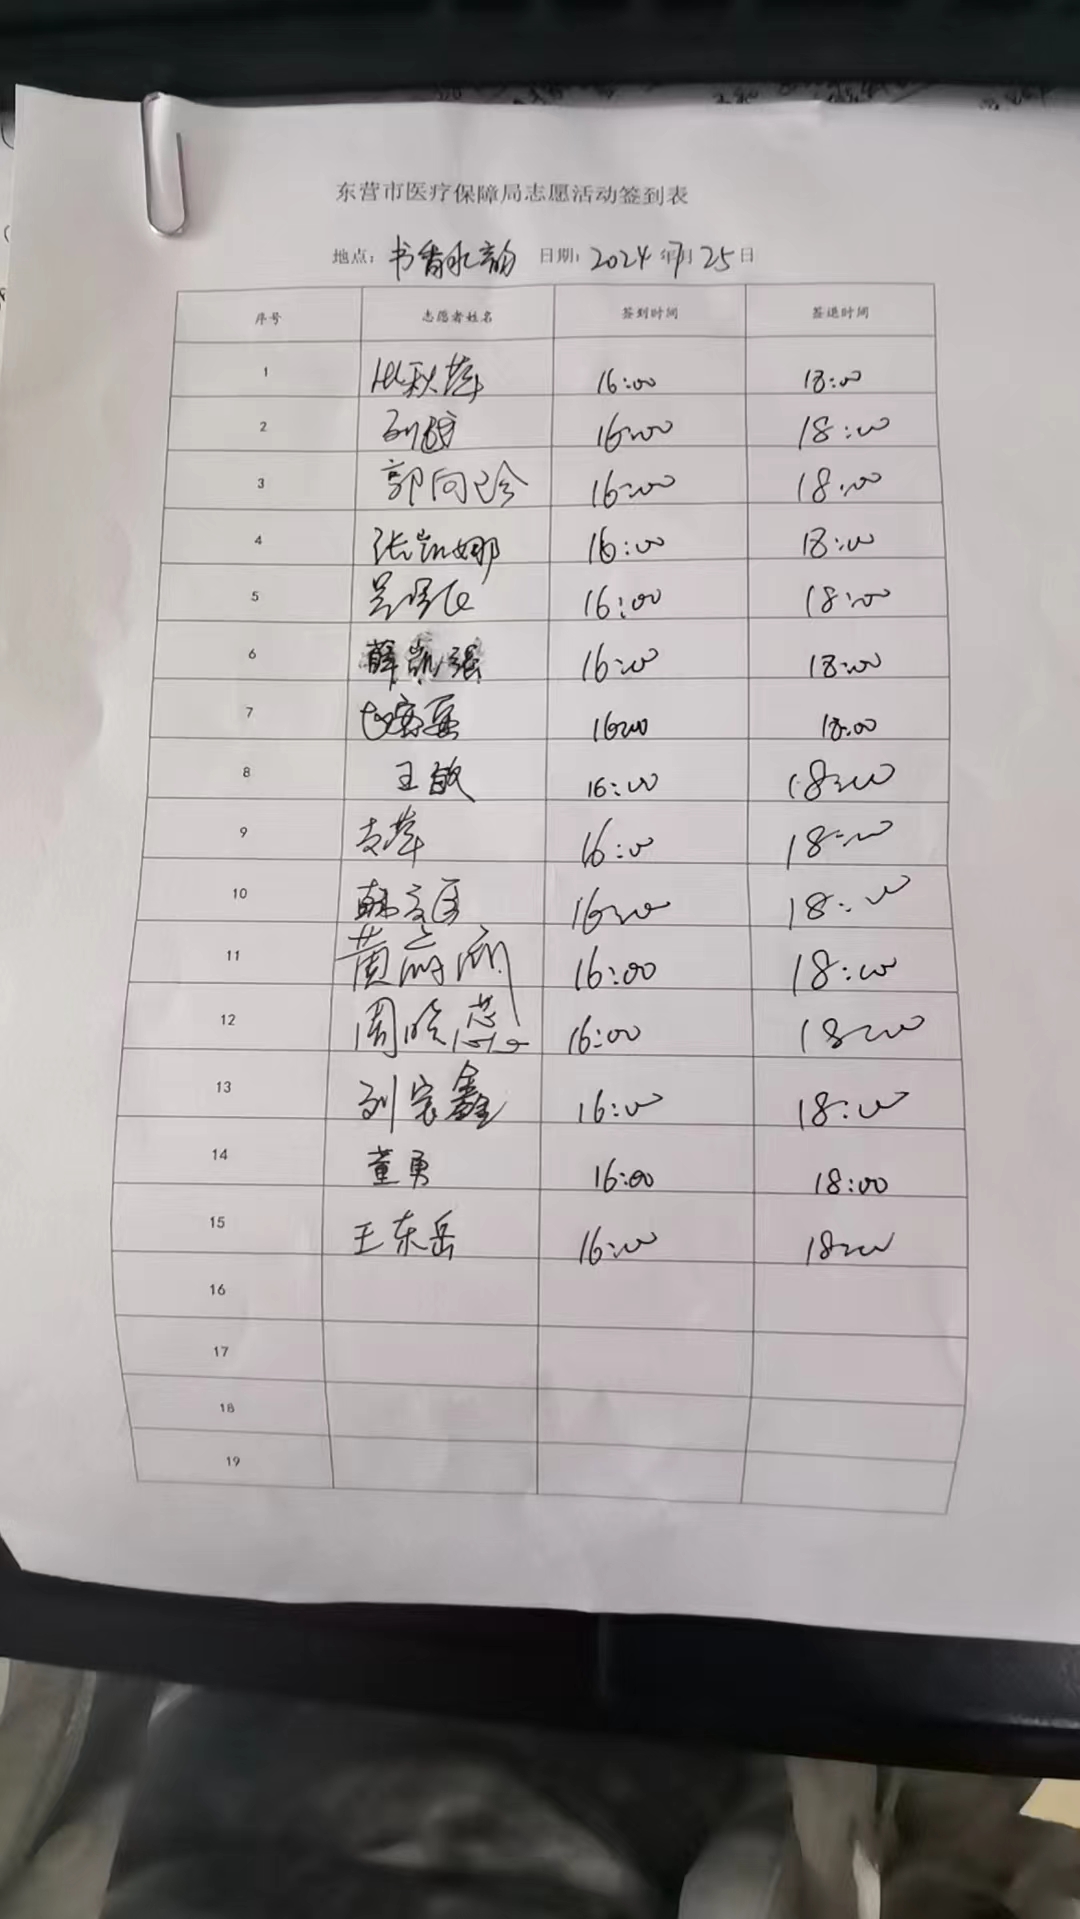 东营市医疗保障局志愿活动签到表
地点: 书香水韵 日期: 2024年7月25日
序号 志愿者姓名 签到时间 签退时间
1 秋萍 16:00 18:00
2 16:00 18:00
3 郭向珍 16:00 18:00
4 张凯娜 16:00 18:00
5 16:00 18:00
6 薛凯强 16:00 18:00
7 16:00 18:00
8 王敏 16:00 18:00
9 支萍 16:00 18:00
10 韩 16:00 18:00
11 黄 16:00 18:00
12 周晓蕊 16:00 18:00
13 刘宝鑫 16:00 18:00
14 董勇 16:00 18:00
15 王东岳 16:00 18:00
16
17
18
19